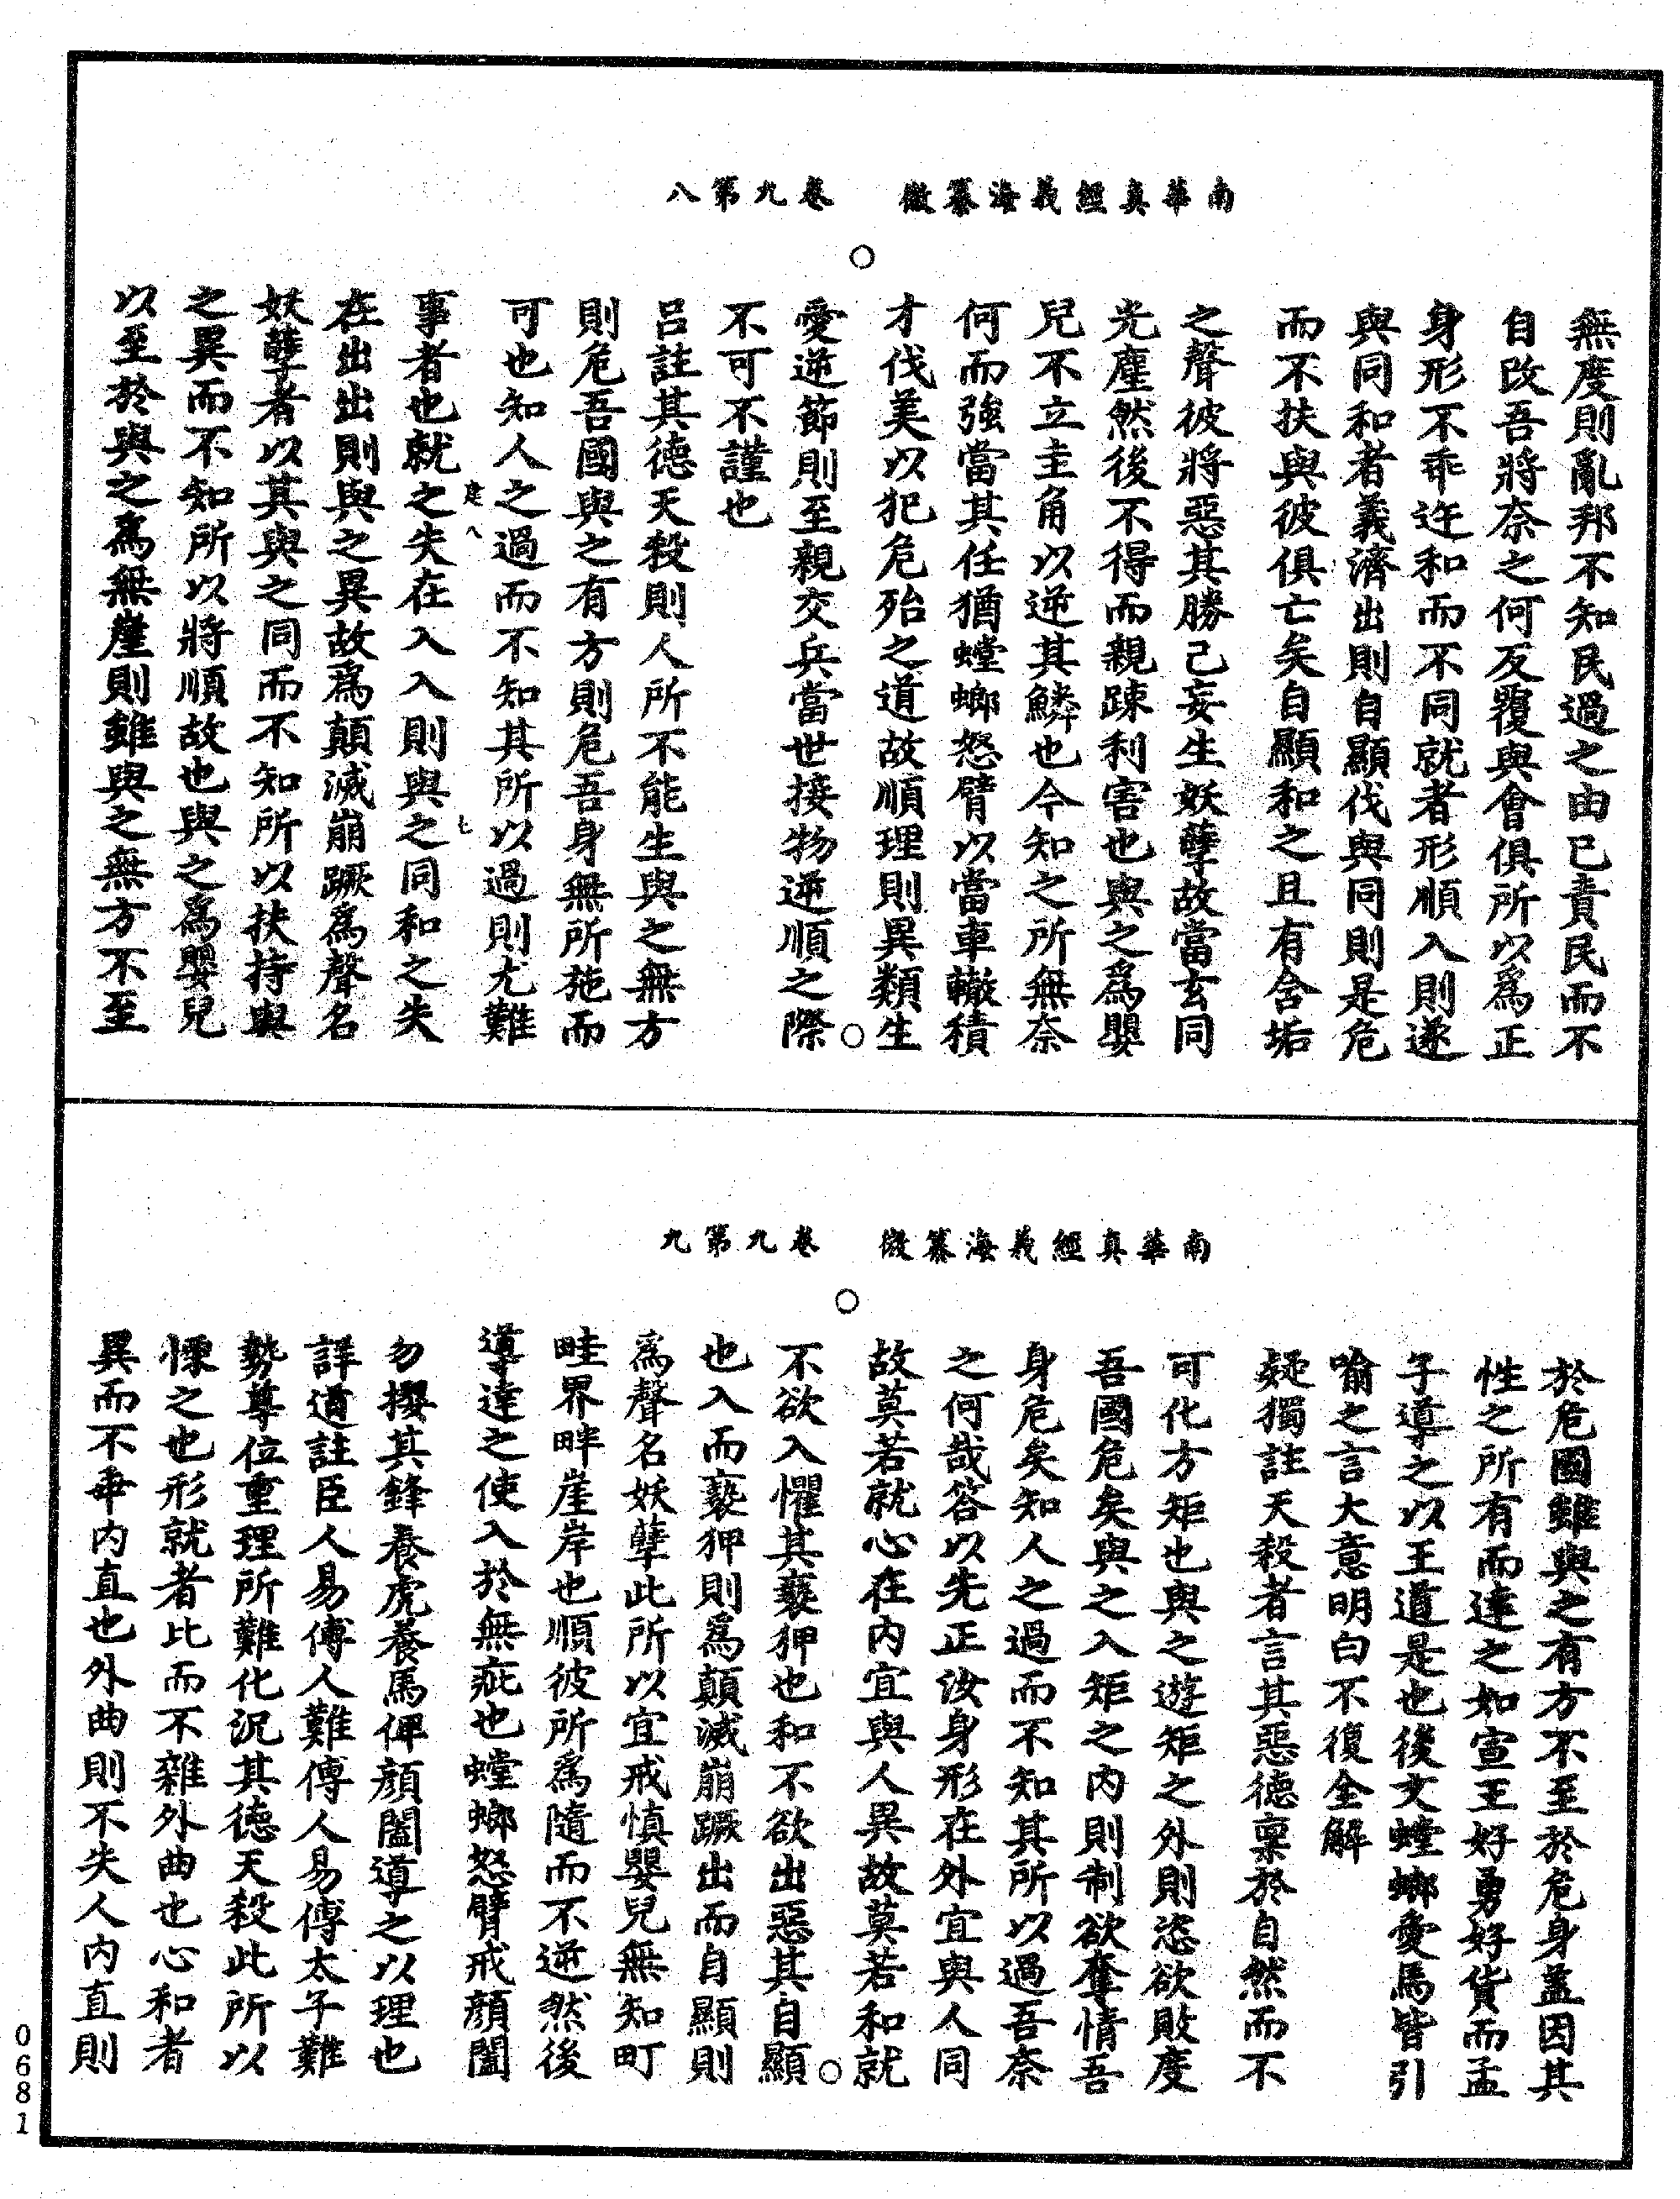 南華真經義海纂微　卷九第八
無度則亂邦不知民過之由已責民而不
自改吾將奈之何反覆與會俱所以為正
身形不乖迕和而不同就者形順入則遂
與同和者義濟出則自顯伐與同則是危
而不扶與彼俱亡矣自顯和之且有含垢
之聲彼將惡其勝己妄生妖孽故當玄同
光塵然後不得而親踈利害也與之為嬰
兒不立圭角以逆其鱗也今知之所無奈
何而強當其任猶螳螂怒臂以當車轍積
才伐美以犯危殆之道故順理則異類生
愛逆節則至親交兵當世接物逆順之際
不可不謹也
呂註其德天殺則人所不能生與之無方
則危吾國與之有方則危吾身無所施而
可也知人之過而不知其所以過則尤難
事者也就之失在入入則與之同和之失
建八
七
在出出則與之異故為顛滅崩蹶為聲名
妖孽者以其與之同而不知所以扶持與
之異而不知所以將順故也與之為嬰兒
以至於與之為無崖則雖與之無方不至
南華真經義海纂微　卷九第九
於危國雖與之有方不至於危身蓋因其
性之所有而達之如宣王好勇好貨而孟
子導之以王道是也後文螳螂愛馬皆引
喻之言大意明白不復全解
疑獨註天殺者言其惡德稟於自然而不
可化方矩也與之遊矩之外則恣欲敗度
吾國危矣與之入矩之內則制欲奪情吾
身危矣知人之過而不知其所以過吾奈
之何哉答以先正汝身形在外宜與人同
故莫若就心在內宜與人異故莫若和就
不欲入懼其褻狎也和不欲出惡其自顯
也入而褻狎則為顛滅崩蹶出而自顯則
為聲名妖孽此所以宜戒慎嬰兒無知町
畦界畔崖岸也順彼所為隨而不逆然後
導達之使入於無疵也螳螂怒臂戒顔闔
勿攖其鋒養虎養馬俾顔闔導之以理也
詳道註臣人易傅人難傅人易傅太子難
勢尊位重理所難化況其德天殺此所以
慄之也形就者比而不雜外曲也心和者
異而不乖內直也外曲則不失人內直則
0681